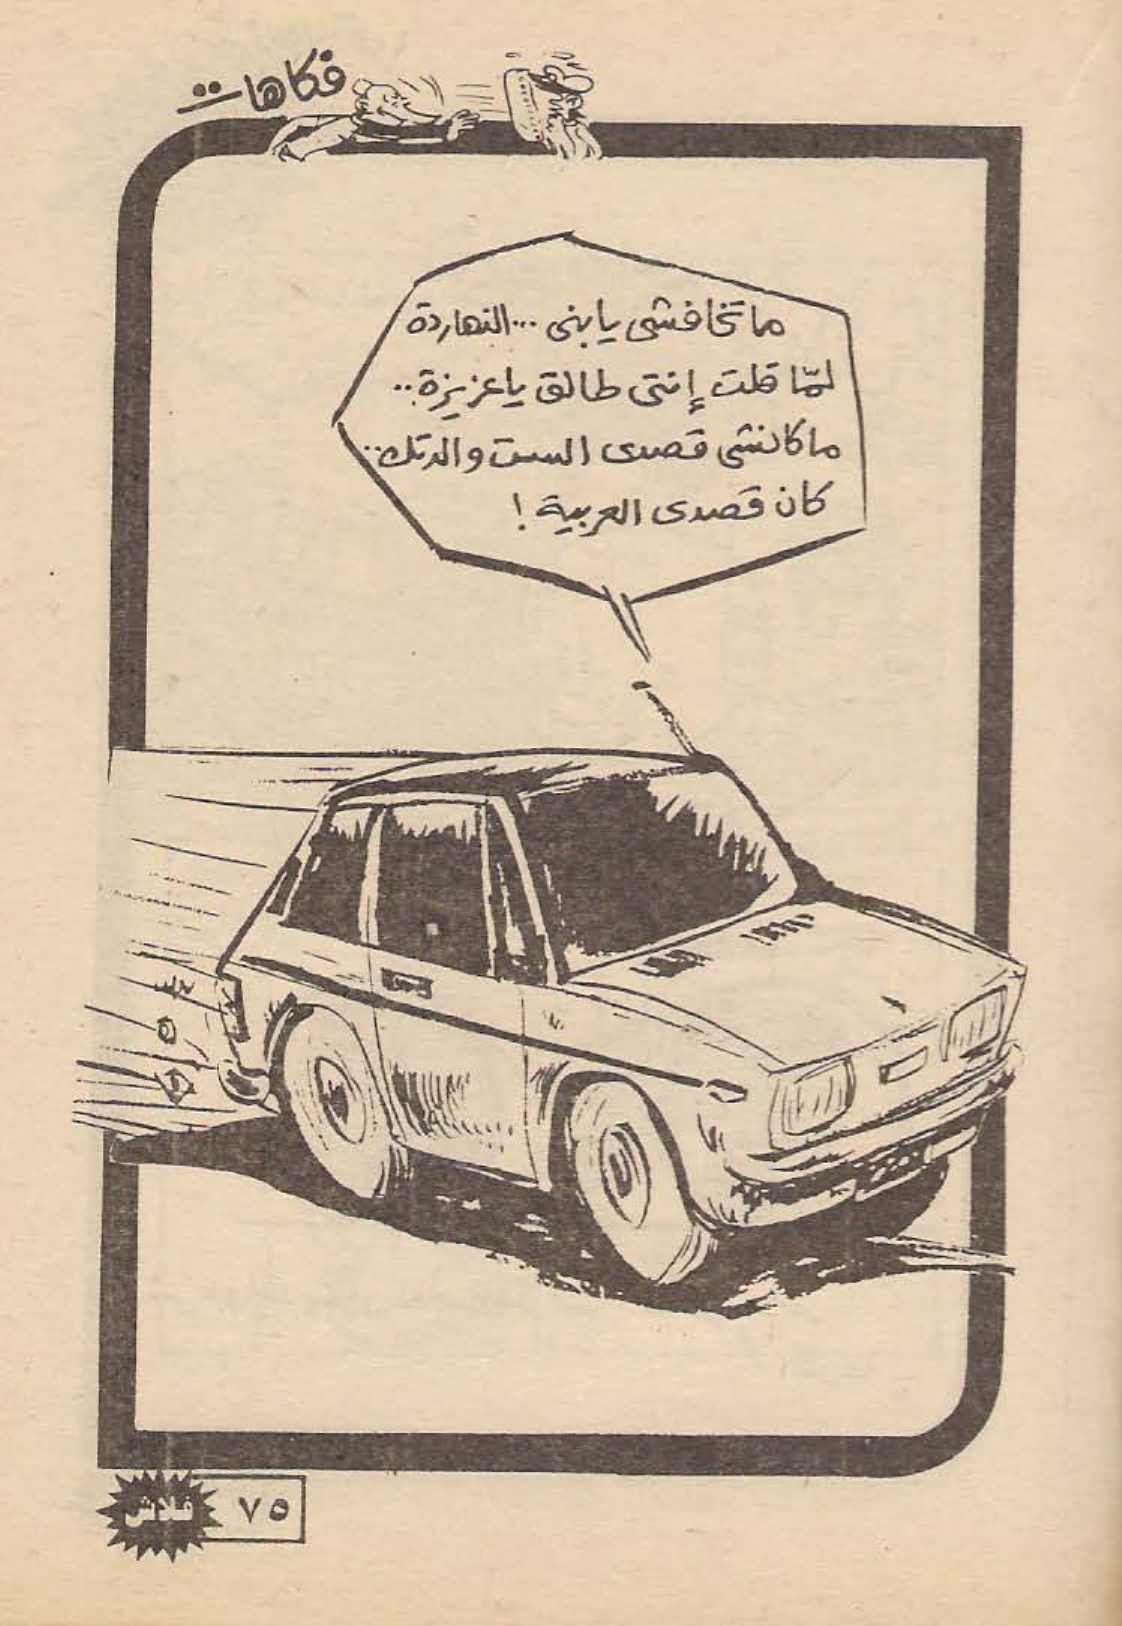 فكاهات
ما تخافشى يابنى ... النهاردة
لمّا قلت إنتى طالق ياعزيزة ..
ماكانشى قصدى الست والدتك ..
كان قصدى العربية !
فلاش ٧٥